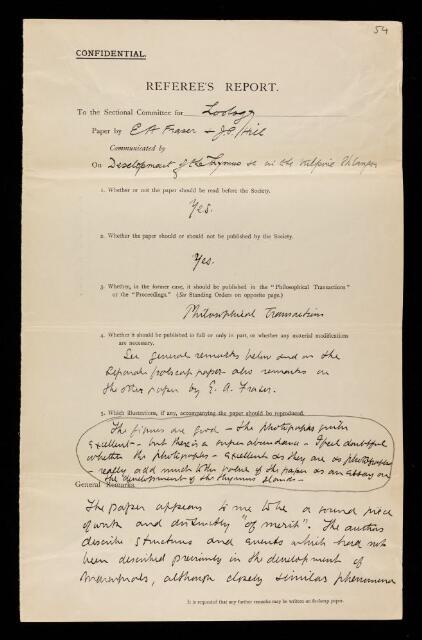 54
CONFIDENTIAL.
REFEREE'S REPORT.
To the Sectional Committee for Zoology
Paper by E A Fraser & J P Hill
Communicated by
On Development of the Thymus &c in the
1. Whether or not the paper should be read before the Society.
Yes.
2. Whether the paper should or should not be published by the Society.
Yes.
3. Whether, in the former case, it should be published in the "Philosophical Transactions"
or the "Proceedings." (See Standing Orders on opposite page.)
Philosophical Transactions
4. Whether it should be published in full or only in part, or whether any material modifications
are necessary.
See general remarks below and on the
separate foolscap paper also remarks on
the other paper by E. A. Fraser.
5. Which illustrations, if any, accompanying the paper should be reproduced.
The figures are good - the photographs quite
excellent - but there is a super abundance - I feel doubtful
whether the photographs - excellent as they are as photographs
- really add much to the value of the paper as an essay on
the development of the thymus glands -
General Remarks.
The paper appears to me to be a sound piece
of work and distinctly "of merit". The authors
describe structures and events which had not
been described previously in the development of
Marsupials, although closely similar phenomena
It is requested that any further remarks may be written on foolscap paper.